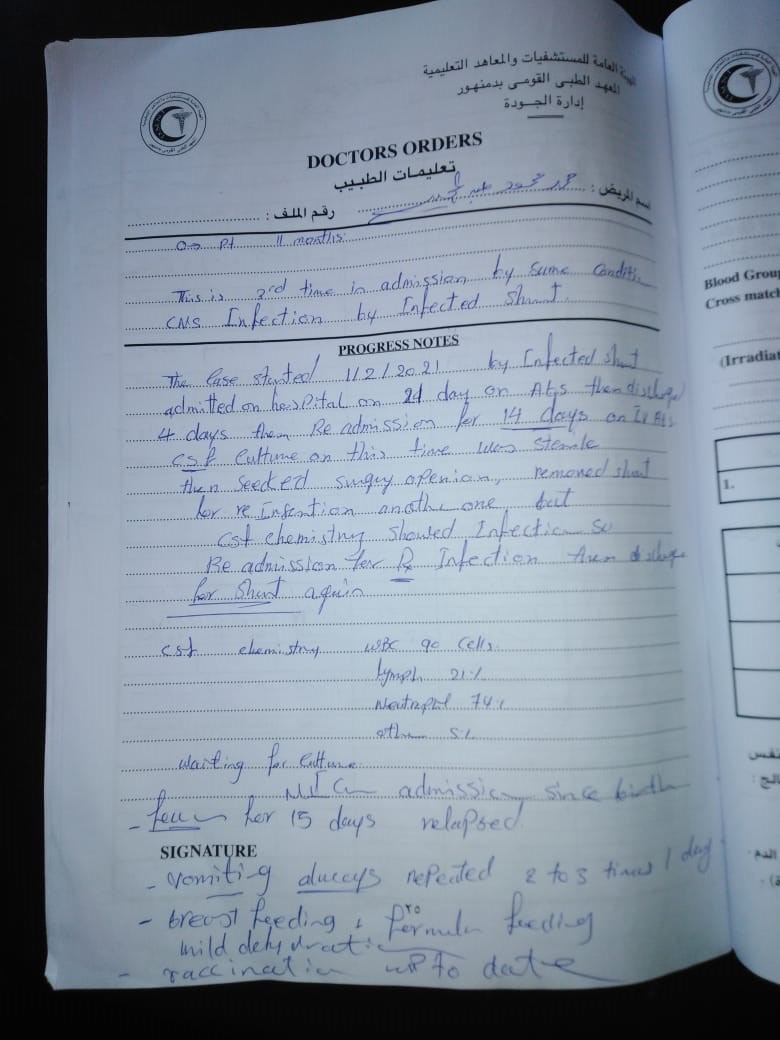 الهيئة العامة للمستشفيات والمعاهد التعليمية
المعهد الطبى القومى بدمنهور
إدارة الجودة
DOCTORS ORDERS
تعليمات الطبيب
اسم المريض : محمد محمود
رقم الملف :
Pt 11 months
This is 2nd time in admission by same Conditi
CNS Infection by Infected Shunt.
PROGRESS NOTES
The Case started 1/2/2021 by Infected shunt
admitted on hospital on 21 day on Abs then discharge
4 days then Re admission for 14 days on Iv Abs
CSF Culture on this time was sterile
then seeked surgry openion, removed shunt
for re Insertion another one but
Csf chemistry showed Infection so
Re admission for Rx Infection then discharge
for Shunt again
csf chemistry WBC 90 Cells.
lymph 21%
Neutrophil 74%
other 5%
waiting for Culture
NICU admission, since birth
- fever for 15 days relapsed
SIGNATURE
- vomiting always repeated 2 to 3 times / day
- breast feeding + formula feeding
mild dehydration
- vaccination up to date
Blood Group
Cross match
(Irradiat
1.